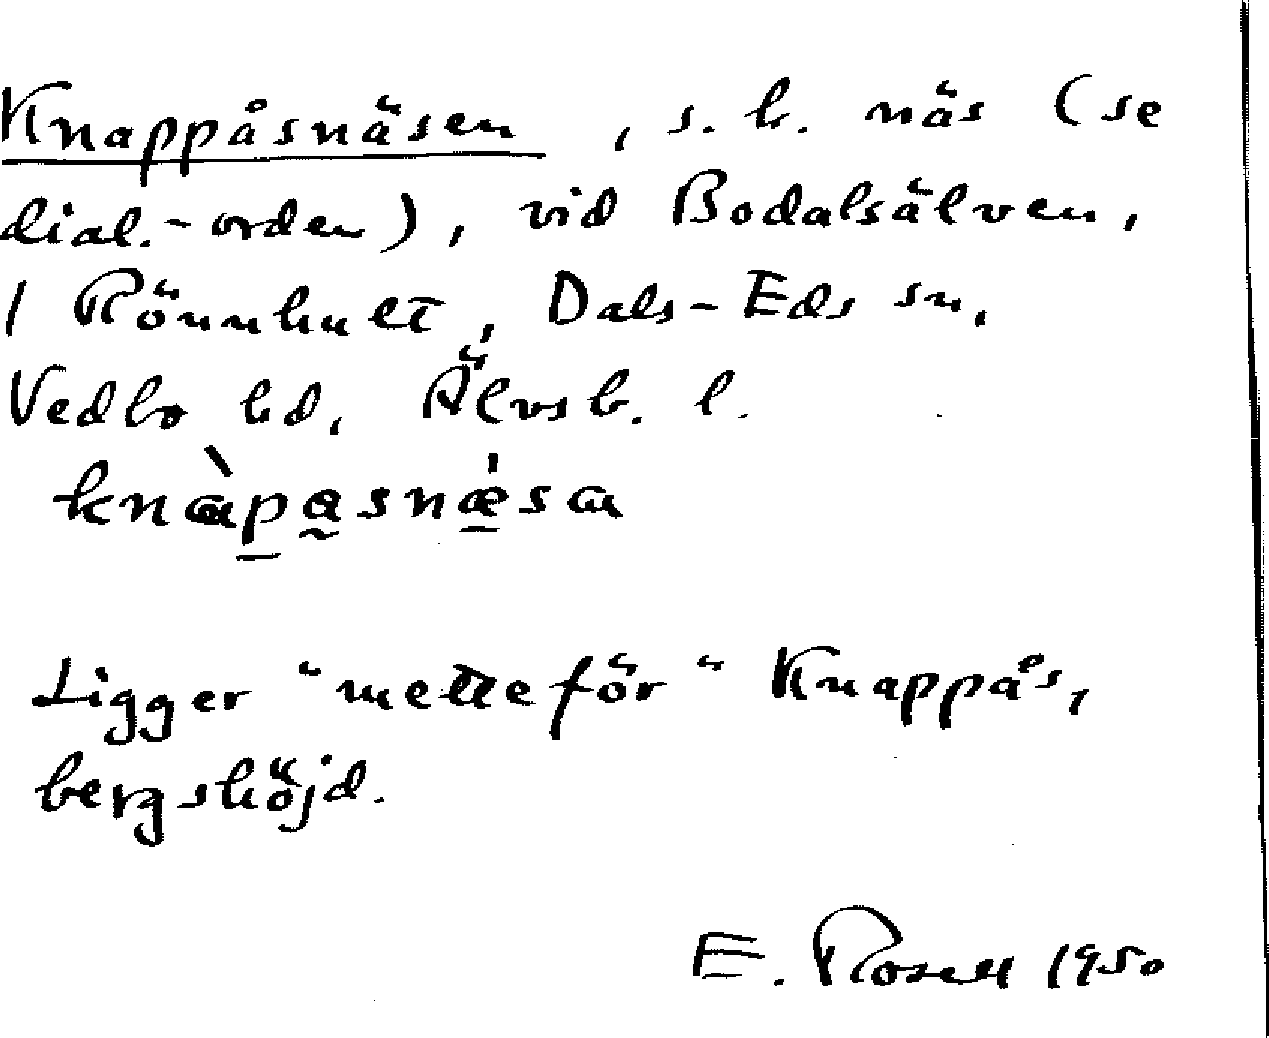 Knappåsnäsen, s. k. näs (se
dial.-orden), vid Bodalsälven,
/ Rönnhult, Dals-Eds sn,
Vedbo hd, Älvsb. l.
knàpasnæ̀sa
Ligger "metteför" Knappås,
bergshöjd.
E. Rosell 1950